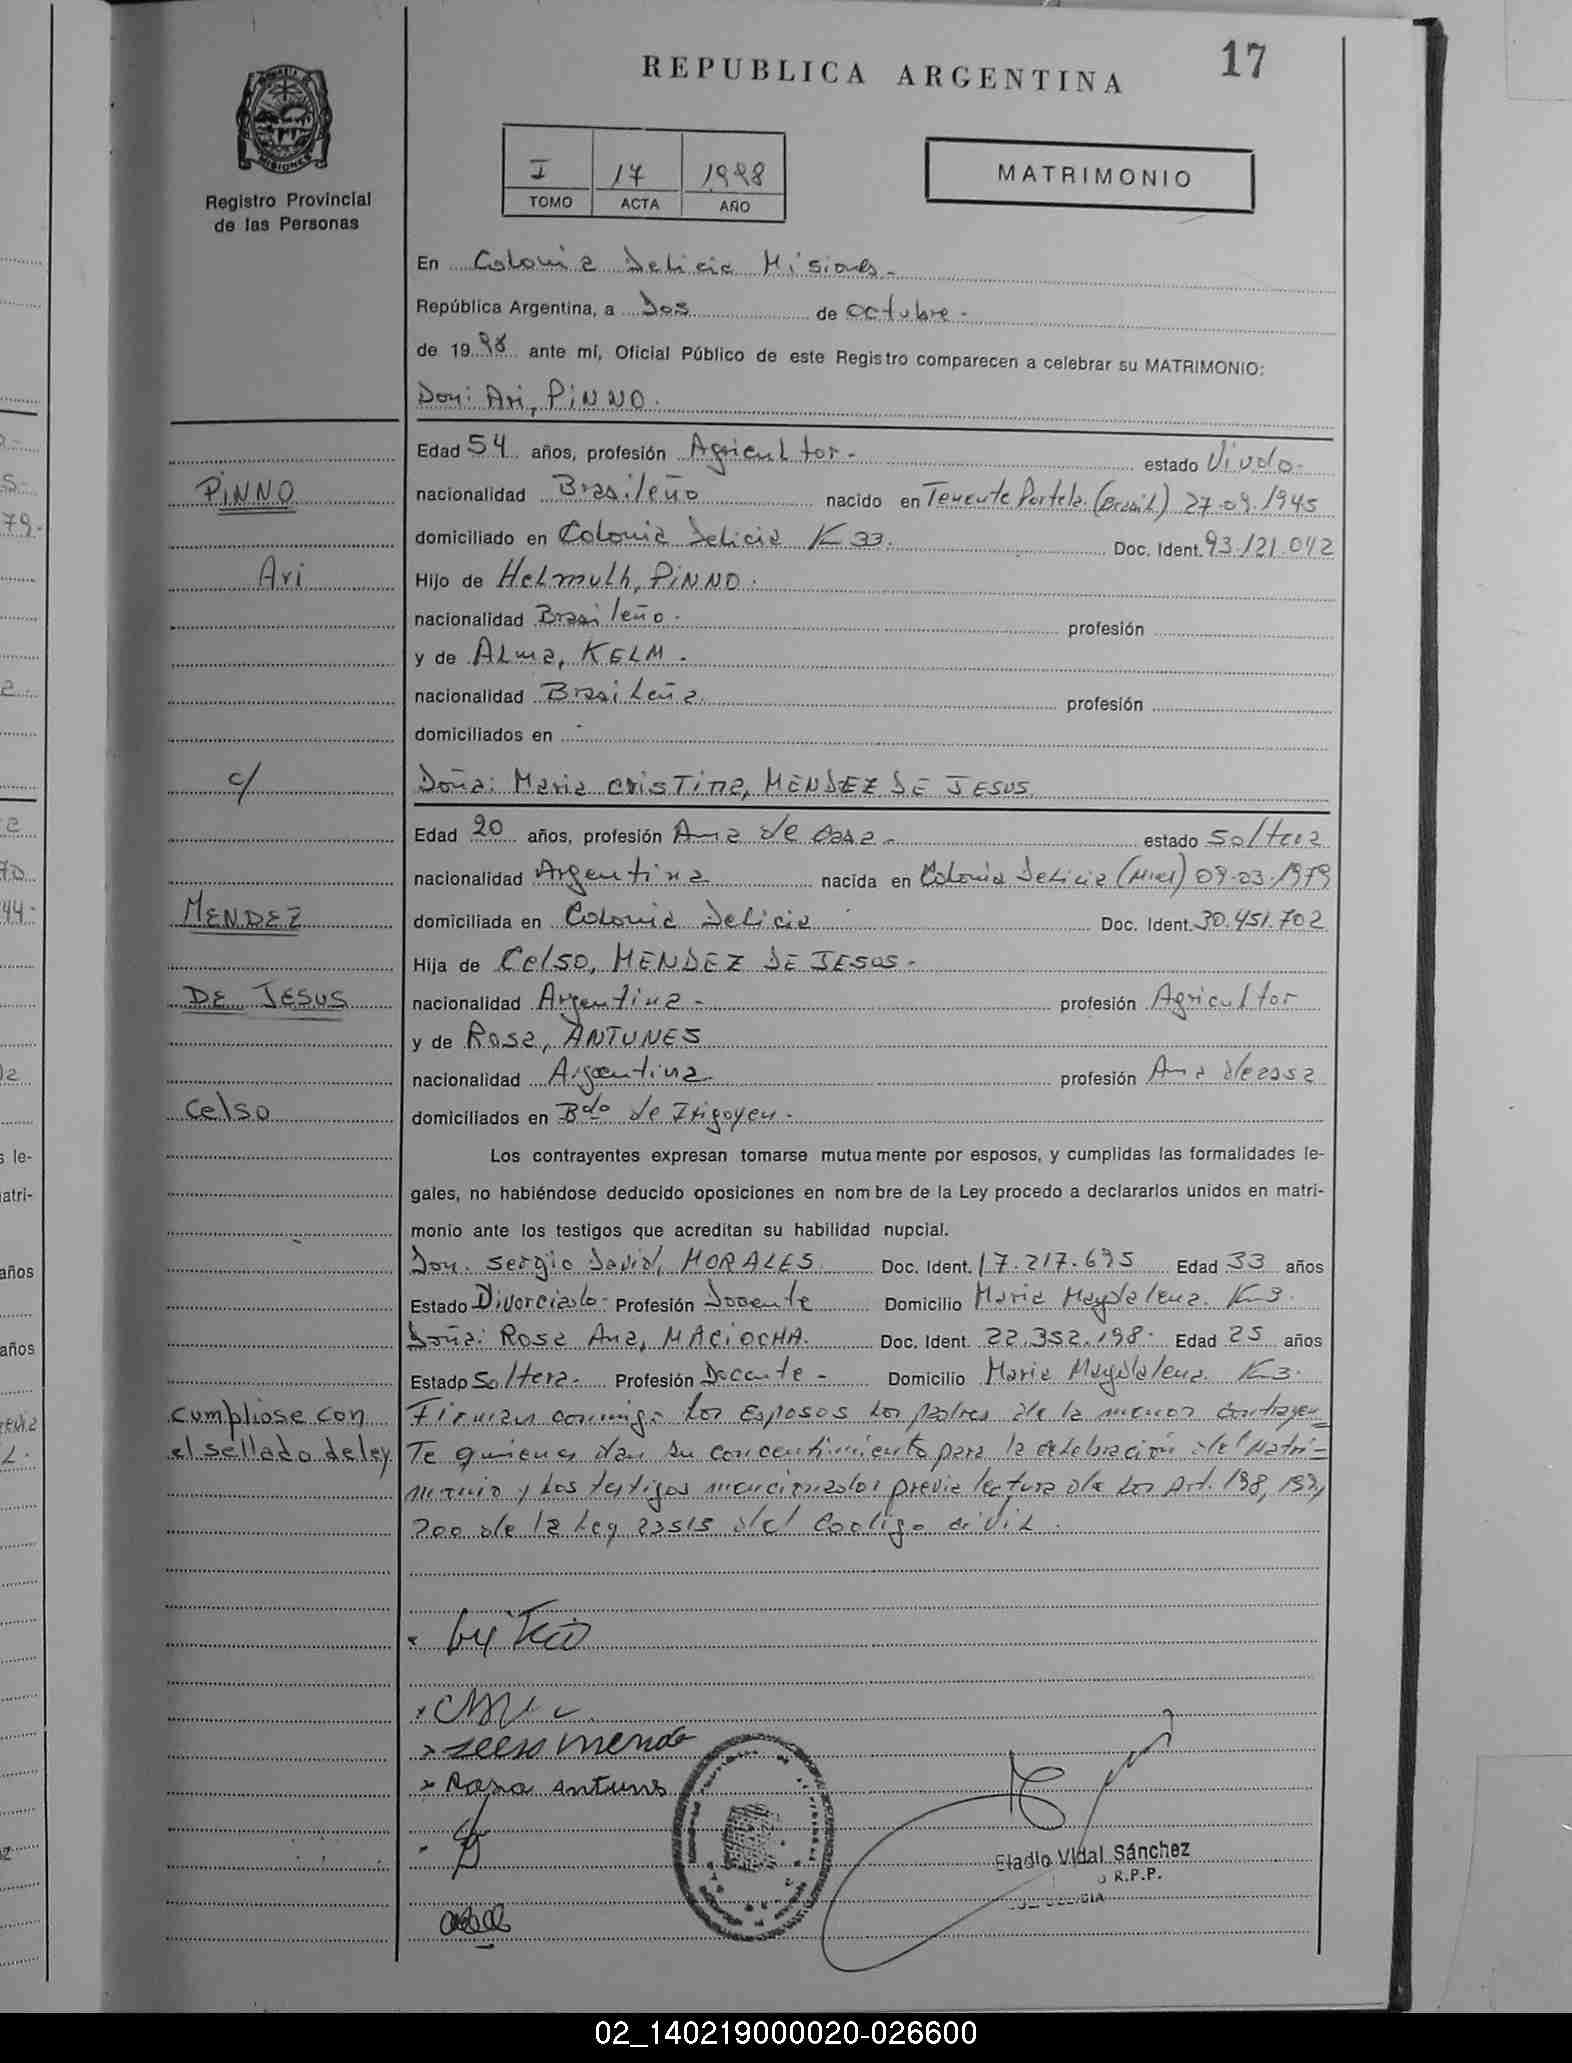 17
REPUBLICA ARGENTINA
MATRIMONIO
I 17 1998
TOMO ACTA AÑO
Registro Provincial
de las Personas
En Colonia Delicia Misiones.-
República Argentina, a Dos de octubre.-
de 1998 ante mí, Oficial Público de este Registro comparecen a celebrar su MATRIMONIO:
Don: Ari, PiNNO.
Edad 54 años, profesión Agricultor.- estado Viudo.-
PiNNO
nacionalidad Brasileño nacido en Tenente Portela (Brasil.) 27.09.1945
domiciliado en Colonia Delicia K 33. Doc. Ident. 93.121.042
Ari
Hijo de Helmuth, PiNNO.
nacionalidad Brasileño. profesión
y de Alma, KELM.
nacionalidad Brasileña profesión
domiciliados en
c/
Doña: Maria cristina, MENDEZ DE JESUS
Edad 20 años, profesión Ama de casa.- estado Soltera
nacionalidad Argentina nacida en Colonia Delicia (Mnes) 09.03.1979
MENDEZ
domiciliada en Colonia Delicia Doc. Ident. 30.451.702
Hija de Celso, MENDEZ DE JESUS.-
DE JESUS
nacionalidad Argentina.- profesión Agricultor
y de Rosa, ANTUNES
nacionalidad Argentina profesión Ama de casa
Celso
domiciliados en Bdo de Irigoyen.-
Los contrayentes expresan tomarse mutuamente por esposos, y cumplidas las formalidades le-
gales, no habiéndose deducido oposiciones en nombre de la Ley procedo a declararlos unidos en matri-
monio ante los testigos que acreditan su habilidad nupcial.
Don. Sergio David, MORALES Doc. Ident. 17.217.695 Edad 33 años
Estado Divorciado- Profesión Docente Domicilio Maria Magdalena. K-3.
Doña: Rosa Ana, MACiOCHA. Doc. Ident. 22.352.198. Edad 25 años
Estado Soltera.- Profesión Docente- Domicilio Maria Magdalena K-3.
cumpliose con
el sellado de ley
Firman conmigo los esposos los padres de la menor contrayen=
Te quienes dan su concentimiento para la celebración del Matri=
monio y los testigos mencionados previa lectura de los Art. 198, 199,
200 de la Ley 23515 del Codigo civil.
Rosa Antuns
Eladio Vidal Sánchez
R.P.P.
02_140219000020-026600